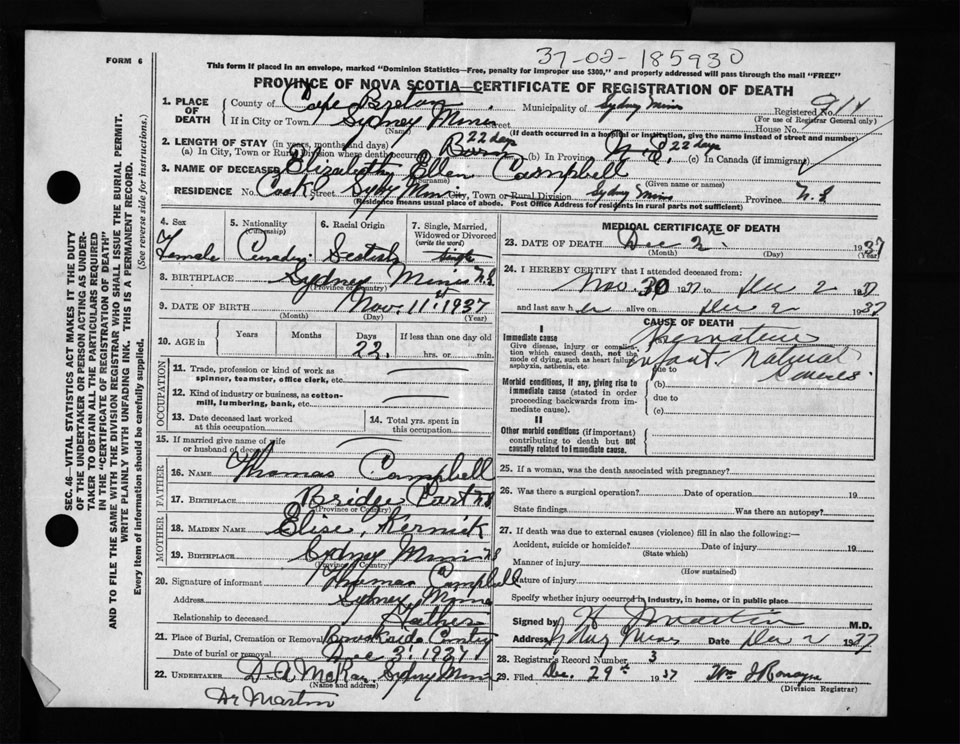 37-02-185930
FORM 6
This form if placed in an envelope, marked "Dominion Statistics—Free, penalty for improper use $300," and properly addressed will pass through the mail "FREE"
PROVINCE OF NOVA SCOTIA—CERTIFICATE OF REGISTRATION OF DEATH
1. PLACE OF DEATH
County of Cape Breton Municipality of Sydney Mines Registered No.
(For use of Registrar General only)
If in City or Town Sydney Mines Street House No.
(Name) (If death occurred in a hospital or institution, give the name instead of street and number)
2. LENGTH OF STAY (in years, months and days) 22 days 22 days
(a) In City, Town or Rural Division where death occurred Born (b) In Province N. S. (c) In Canada (if immigrant)
3. NAME OF DECEASED Elizabeth Ellen Campbell
(Surname) (Given name or names)
RESIDENCE No. Cook Street City, Town or Rural Division Sydney Mines Province N. S
(Residence means usual place of abode. Post Office Address for residents in rural parts not sufficient)
4. Sex
Female
5. Nationality
(Citizenship)
6. Racial Origin
Scotish
7. Single, Married, Widowed or Divorced
(write the word)
Single
8. BIRTHPLACE Sydney Mines N.S
(Province or Country)
9. DATE OF BIRTH Nov. 11st 1937
(Month) (Day) (Year)
10. AGE in Years Months Days If less than one day old
22. hrs. or min.
OCCUPATION
11. Trade, profession or kind of work as spinner, teamster, office clerk, etc.
12. Kind of industry or business, as cotton-mill, lumbering, bank, etc.
13. Date deceased last worked at this occupation
14. Total yrs. spent in this occupation
15. If married give name of wife or husband of deceased
FATHER
16. NAME Thomas Campbell
17. BIRTHPLACE Bridge Port NS
(Province or Country)
MOTHER
18. MAIDEN NAME Elise, Kernick
19. BIRTHPLACE Sydney Mines N.S
(Province or Country)
20. Signature of informant Thomas Campbell
Address Sydney Mines
Relationship to deceased Father
21. Place of Burial, Cremation or Removal
Date of burial or removal Dec 3, 1937
22. UNDERTAKER D. A McKay, Sydney Mines
(Name and address)
Dr Martin
MEDICAL CERTIFICATE OF DEATH
23. DATE OF DEATH Dec 2 1937
(Month) (Day) (Year)
24. I HEREBY CERTIFY that I attended deceased from:
Nov. 30 1937 to Dec 2 1937
and last saw her alive on Dec 2 1937
CAUSE OF DEATH
I
Immediate cause
Give disease, injury or complication which caused death, not the mode of dying, such as heart failure, asphyxia, asthenia, etc.
Premature
infant. Natural
Causes.
due to
Morbid conditions, if any, giving rise to immediate cause (stated in order proceeding backwards from immediate cause).
(b)
due to
(c)
II
Other morbid conditions (if important) contributing to death but not causally related to immediate cause.
25. If a woman, was the death associated with pregnancy?
26. Was there a surgical operation? Date of operation 19
State findings Was there an autopsy?
27. If death was due to external causes (violence) fill in also the following:—
Accident, suicide or homicide? Date of injury 19
(State which)
Manner of injury
(How sustained)
Nature of injury
Specify whether injury occurred in industry, in home, or in public place
Signed by H Martin M.D.
Address Date Dec 2 1937
28. Registrar's Record Number 3
29. Filed Dec. 29th 1937
(Division Registrar)
SEC. 46—VITAL STATISTICS ACT MAKES IT THE DUTY
OF THE UNDERTAKER OR PERSON ACTING AS UNDER-
TAKER TO OBTAIN ALL THE PARTICULARS REQUIRED
IN THE "CERTIFICATE OF REGISTRATION OF DEATH"
AND TO FILE THE SAME WITH THE DIVISION REGISTRAR WHO SHALL ISSUE THE BURIAL PERMIT.
WRITE PLAINLY WITH UNFADING INK. THIS IS A PERMANENT RECORD.
Every item of information should be carefully supplied. (See reverse side for instructions.)